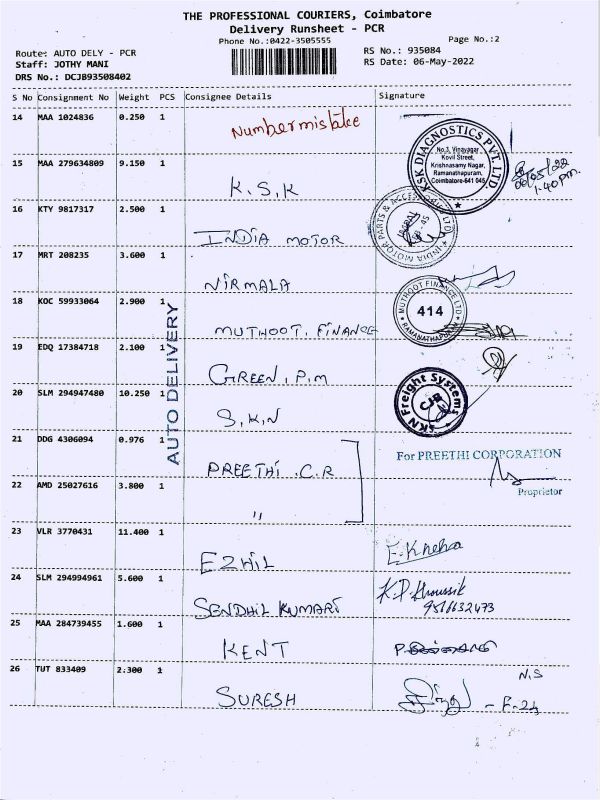 THE PROFESSIONAL COURIERS, Coimbatore
Delivery Runsheet - PCR
Phone No.:0422-3505555
Page No.:2
Route: AUTO DELY - PCR
RS No.: 935084
Staff: JOTHY MANI
RS Date: 06-May-2022
DRS No.: DCJB93508402
S No Consignment No Weight PCS Consignee Details Signature
14 MAA 1024836 0.250 1 Number mistake
KSK DIAGNOSTICS PVT. LTD.
No.3, Vinayagar
Kovil Street,
Krishnasamy Nagar,
Ramanathapuram,
Coimbatore-641 045
1.40 pm.
15 MAA 279634809 9.150 1 K.S.K
16 KTY 9817317 2.500 1 INDIA MOTOR
INDIA MOTOR PARTS & ACCESSORIES LTD
17 MRT 208235 3.600 1 NIRMALA
18 KOC 59933064 2.900 1 MUTHOOT. FINANCE
MUTHOOT FINANCE LTD
414
RAMANATHAPURAM
AUTO DELIVERY
19 EDQ 17384718 2.100 1 GREEN, P.M
20 SLM 294947480 10.250 1 S.K.N
SKN Freight Systems
CJB
21 DDG 4306094 0.976 1 PREETHI .C.R
For PREETHI CORPORATION
Proprietor
22 AMD 25027616 3.800 1 "
23 VLR 3770431 11.400 1 EZHIL
24 SLM 294994961 5.600 1 SENDHIL KUMARI
25 MAA 284739455 1.600 1 KENT
26 TUT 833409 2.300 1 SURESH
N.S